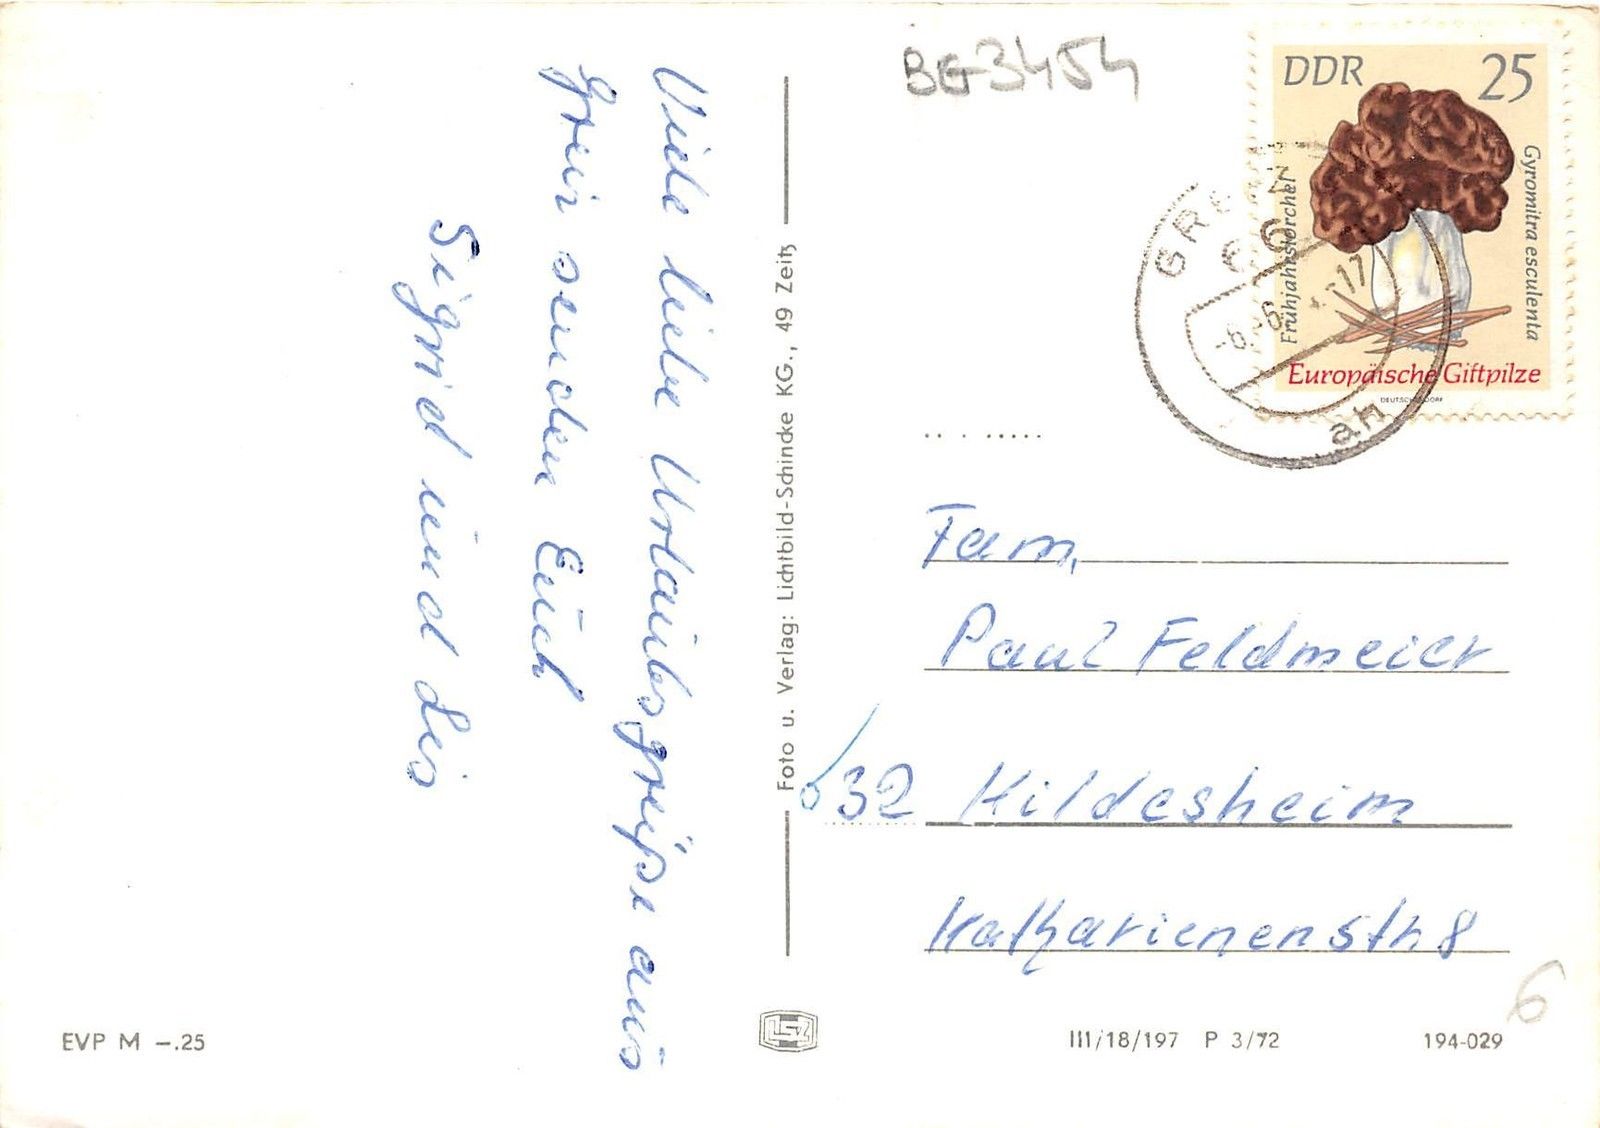 Viele liebe Urlaubsgrüße aus
Greiz senden Euch
Sigrid und Leis
Foto u. Verlag: Lichtbild-Schincke KG., 49 Zeitz
BG3454
DDR 25
Frühjahrslorchel
Gyromitra esculenta
Europäische Giftpilze
Fam.
Paul Feldmeier
32 Hildesheim
Katharienenstr 8
6
EVP M –.25
LSZ
III/18/197 P 3/72
194-029